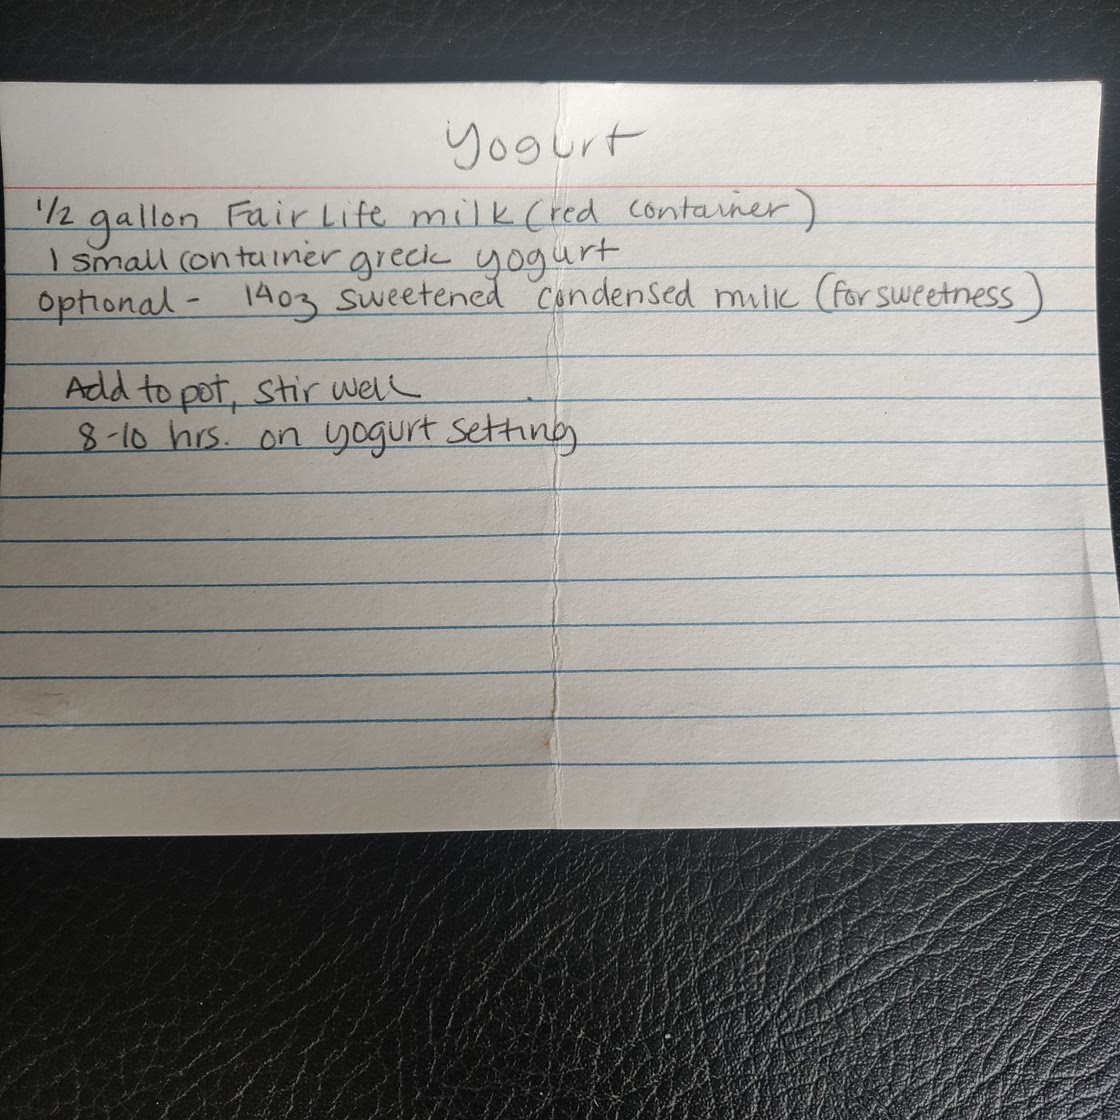 Yogurt
1/2 gallon Fair Life milk (red container)
1 small container greek yogurt
optional - 14oz sweetened condensed milk (for sweetness)
Add to pot, stir well
8-10 hrs. on yogurt setting